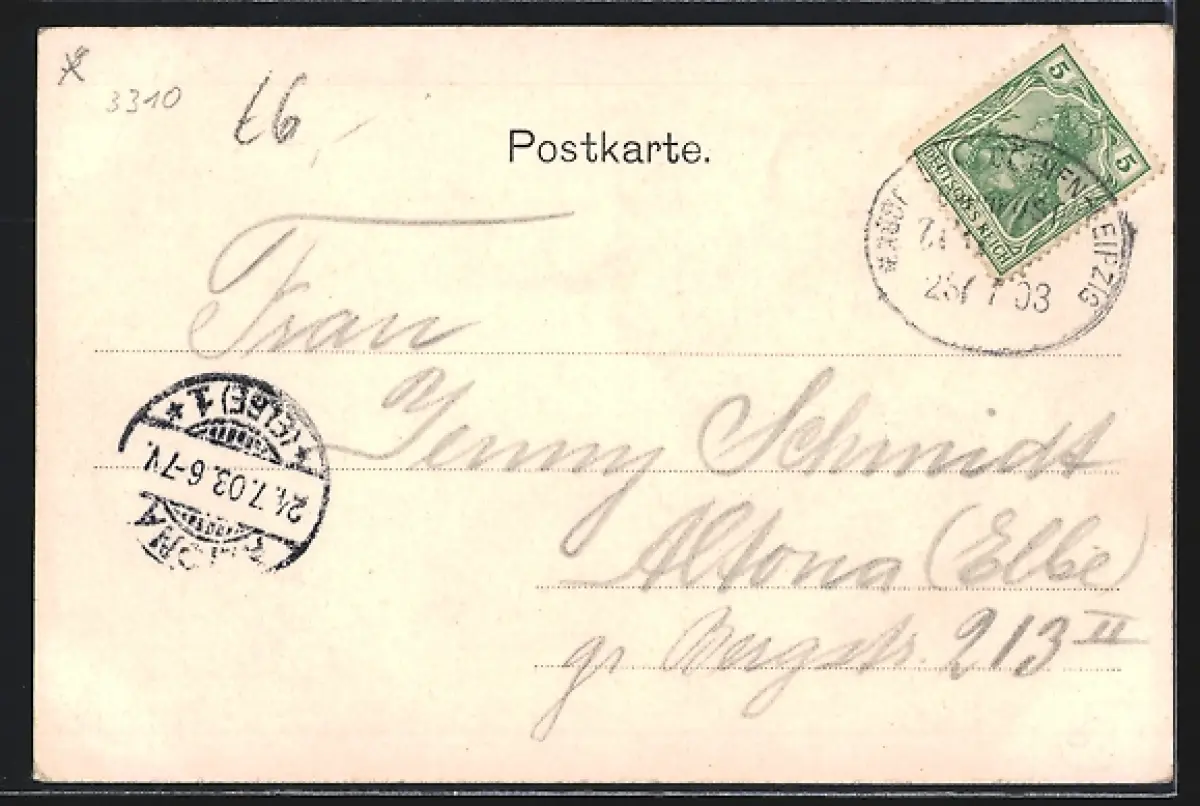 3310
Postkarte.
5
5
DEUTSCHES REICH
LEIPZIG
23/7 03
Frau
Jenny Schmidt
Altona (Elbe)
gr. Bergstr. 213 II
ALTONA
24.7.03. 6-7 V.
* (ELBE) 1 *